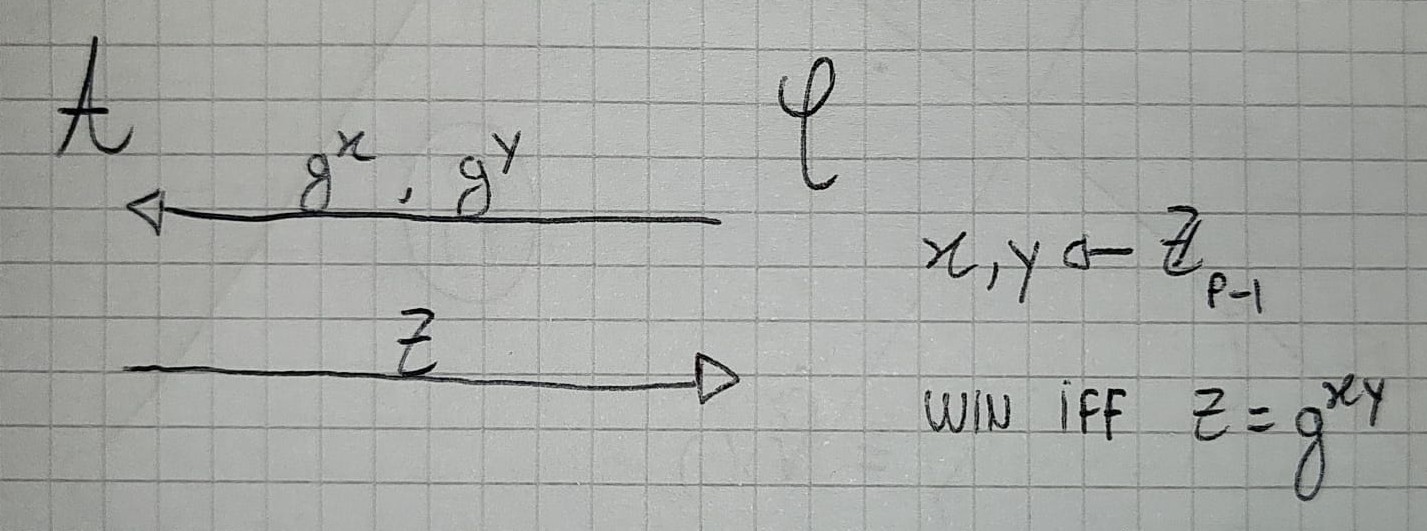 A C
g^x, g^y
x, y ← Z_{p-1}
Z
WIN IFF Z = g^{xy}